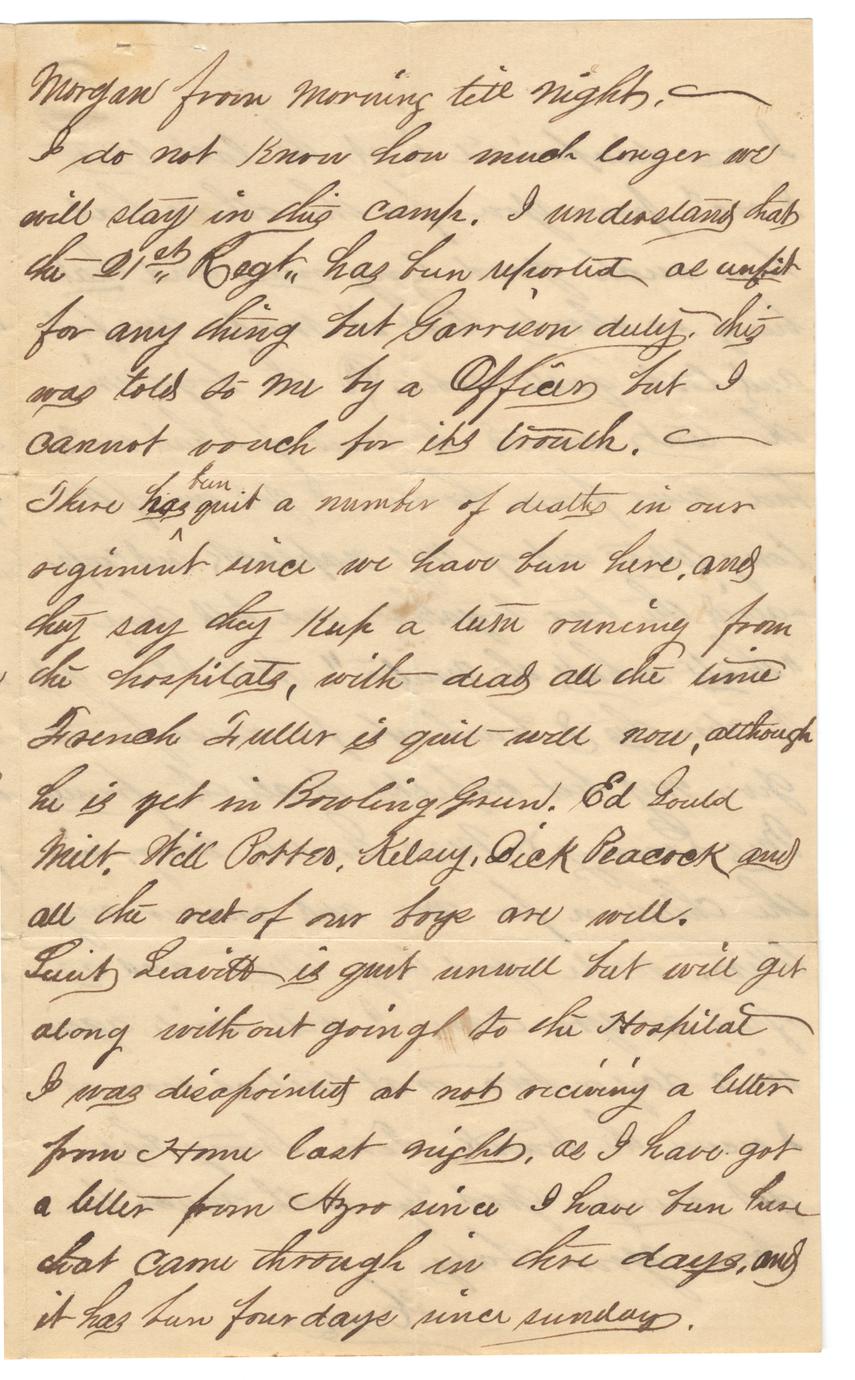 Morgan from morning till night.
I do not know how much longer we
will stay in this camp. I understand that
the 21st Regt,, has been reported as unfit
for any thing but Garrison duty. this
was told to me by a Officer but I
cannot vouch for its trouth.
There has been quit a number of deaths in our
regiment since we have been here, and
they say they keep a team runing from
the hospitals, with dead all the time
French Fuller is quit well now, although
he is yet in Bowling Green. Ed Gould
Milt. Will Potter, Kelsey, Dick Peacock and
all the rest of our boys are well.
Leavitt is quit unwell but will get
along without going to the Hospital
I was disapointed at not reciving a letter
from Home last night, as I have got
a letter from Azro since I have been here
that came through in thre days, and
it has been four days since sunday.